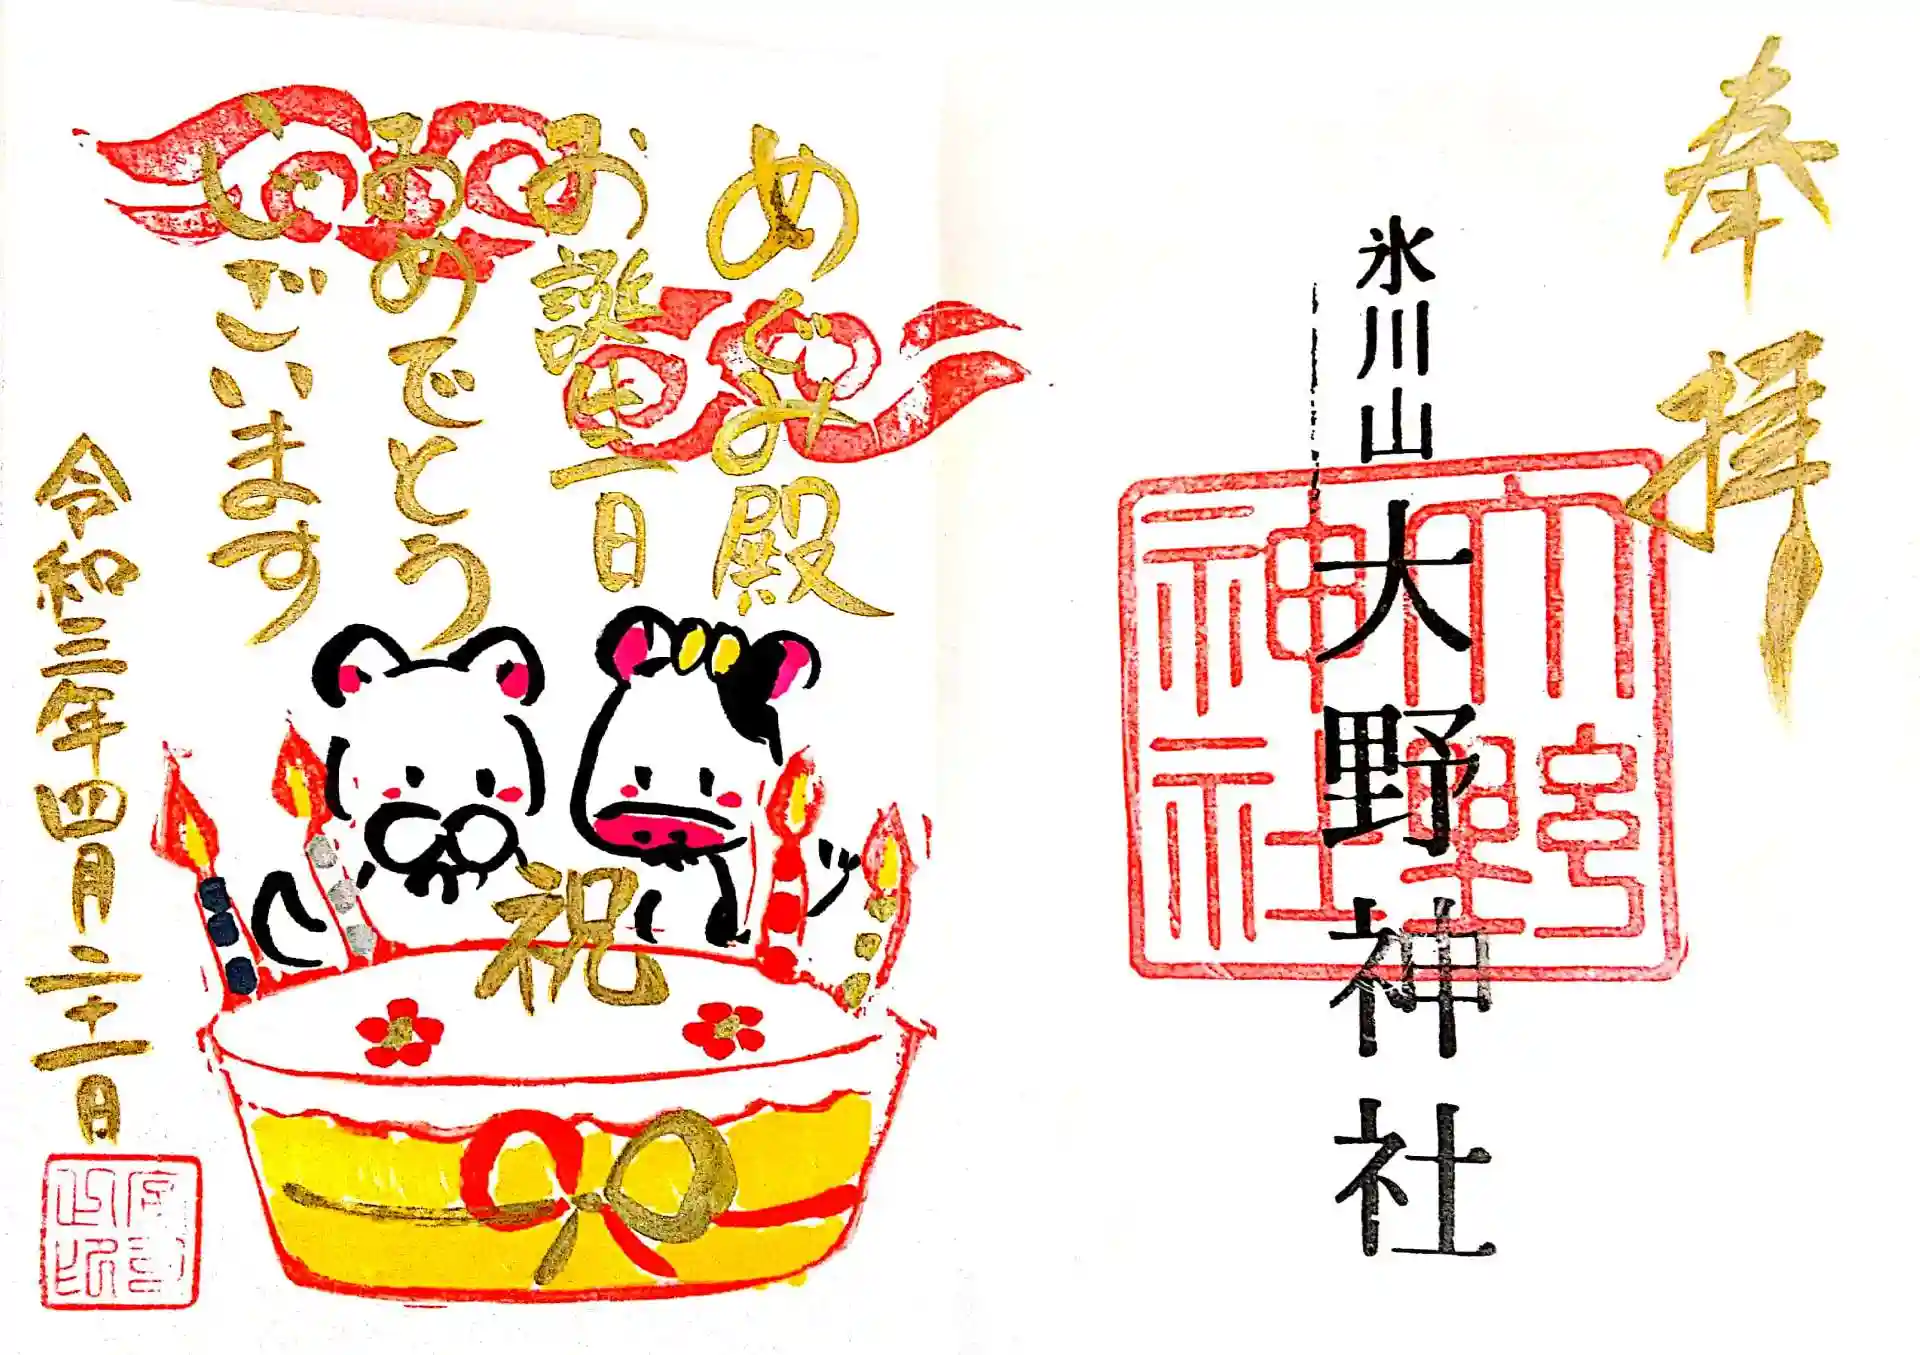 奉拝
氷川山
大野神社
大野神社
めぐみ殿
お誕生日
おめでとう
ございます
祝
令和三年四月二十一日